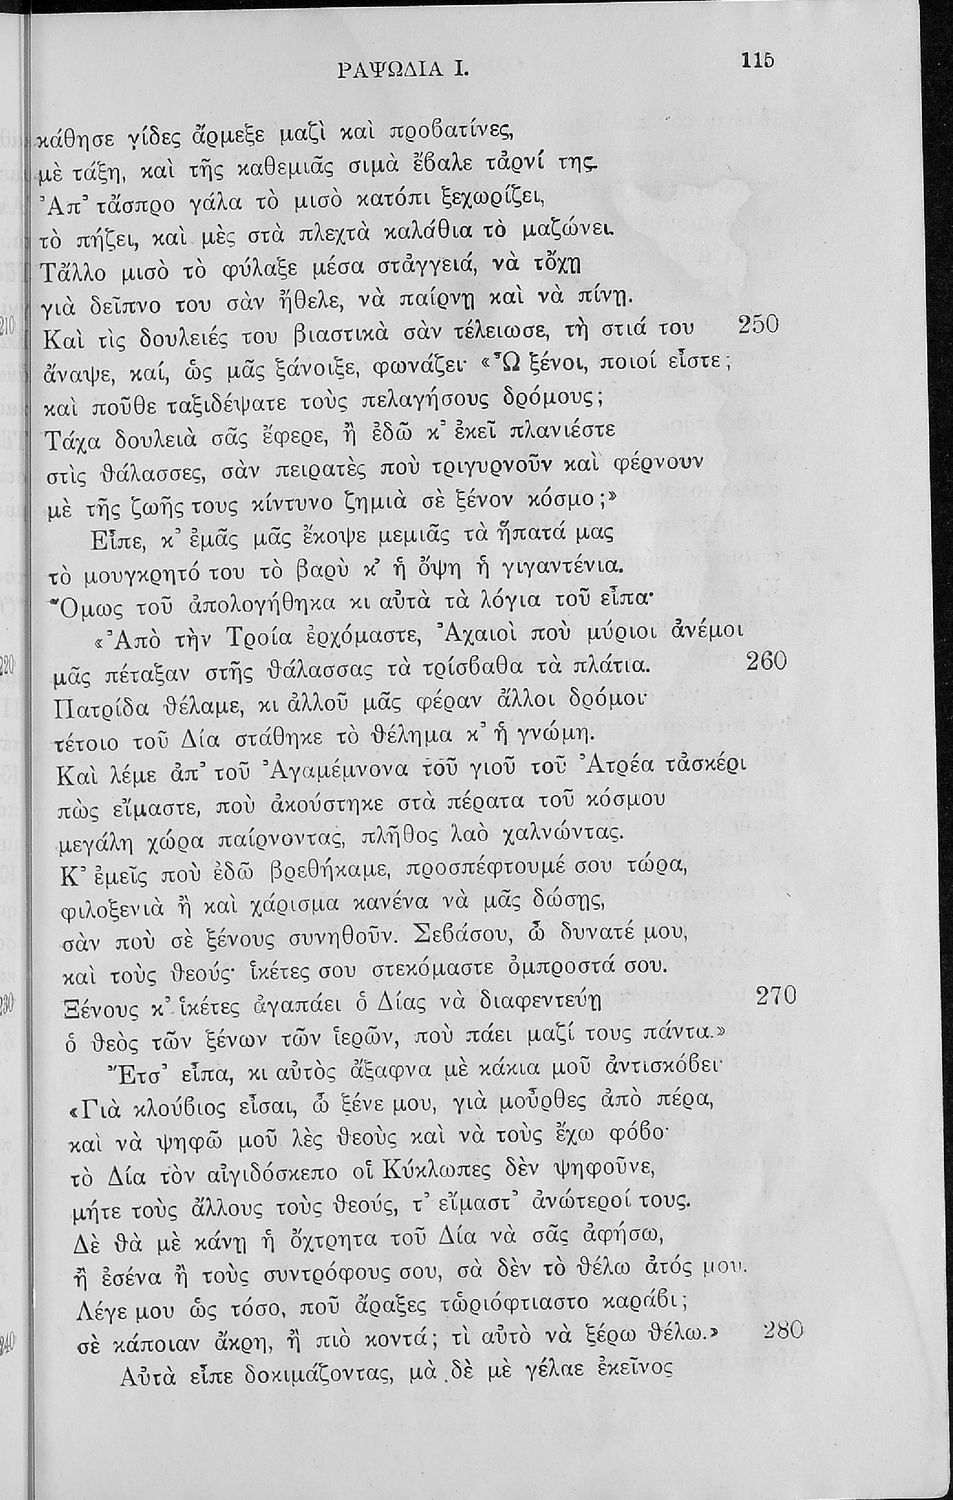 ΡΑΨΩΔΙΑ Ι. 115
κάθησε γίδες ἄρμεξε μαζὶ καὶ προβατίνες,
μὲ τάξη, καὶ τῆς καθεμιᾶς σιμὰ ἔβαλε τἀρνί της.
Ἀπ᾿ τἄσπρο γάλα τὸ μισὸ κατόπι ξεχωρίζει,
τὸ πήζει, καὶ μὲς στὰ πλεχτὰ καλάθια τὸ μαζώνει.
Τἄλλο μισὸ τὸ φύλαξε μέσα στἀγγειά, νὰ τὄχῃ
γιὰ δεῖπνο του σὰν ἤθελε, νὰ παίρνῃ καὶ νὰ πίνῃ.
Καὶ τὶς δουλειές του βιαστικὰ σὰν τέλειωσε, τὴ στιά του 250
ἄναψε, καί, ὡς μᾶς ξάνοιξε, φωνάζει· «Ὦ ξένοι, ποιοί εἶστε;
καὶ ποῦθε ταξιδέψατε τοὺς πελαγήσους δρόμους;
Τάχα δουλειὰ σᾶς ἔφερε, ἢ ἐδῶ κ᾿ ἐκεῖ πλανιέστε
στὶς θάλασσες, σὰν πειρατὲς ποὺ τριγυρνοῦν καὶ φέρνουν
μὲ τῆς ζωῆς τους κίντυνο ζημιὰ σὲ ξένον κόσμο;»
Εἶπε, κ᾿ ἐμᾶς μᾶς ἔκοψε μεμιᾶς τὰ ἥπατά μας
τὸ μουγκρητό του τὸ βαρὺ κ᾿ ἡ ὄψη ἡ γιγαντένια.
Ὅμως τοῦ ἀπολογήθηκα κι αὐτὰ τὰ λόγια τοῦ εἶπα·
«Ἀπὸ τὴν Τροία ἐρχόμαστε, Ἀχαιοὶ ποὺ μύριοι ἀνέμοι
μᾶς πέταξαν στῆς θάλασσας τὰ τρίσβαθα τὰ πλάτια. 260
Πατρίδα θέλαμε, κι ἀλλοῦ μᾶς φέραν ἄλλοι δρόμοι·
τέτοιο τοῦ Δία στάθηκε τὸ θέλημα κ᾿ ἡ γνώμη.
Καὶ λέμε ἀπ᾿ τοῦ Ἀγαμέμνονα τοῦ γιοῦ τοῦ Ἀτρέα τἀσκέρι
πὼς εἴμαστε, ποὺ ἀκούστηκε στὰ πέρατα τοῦ κόσμου
μεγάλη χώρα παίρνοντας, πλῆθος λαὸ χαλνώντας.
Κ᾿ ἐμεῖς ποὺ ἐδῶ βρεθήκαμε, προσπέφτουμέ σου τώρα,
φιλοξενιὰ ἢ καὶ χάρισμα κανένα νὰ μᾶς δώσῃς,
σὰν ποὺ σὲ ξένους συνηθοῦν. Σεβάσου, ὦ δυνατέ μου,
καὶ τοὺς θεούς· ἱκέτες σου στεκόμαστε ὀμπροστά σου.
Ξένους κ᾿ ἱκέτες ἀγαπάει ὁ Δίας νὰ διαφεντεύῃ 270
ὁ θεὸς τῶν ξένων τῶν ἱερῶν, ποὺ πάει μαζί τους πάντα.»
Ἔτσ᾿ εἶπα, κι αὐτὸς ἄξαφνα μὲ κάκια μοῦ ἀντισκόβει·
«Γιὰ κλούβιος εἶσαι, ὦ ξένε μου, γιὰ μοὖρθες ἀπὸ πέρα,
καὶ νὰ ψηφῶ μοῦ λὲς θεοὺς καὶ νὰ τοὺς ἔχω φόβο·
τὸ Δία τὸν αἰγιδόσκεπο οἱ Κύκλωπες δὲν ψηφοῦνε,
μήτε τοὺς ἄλλους τοὺς θεούς, τ᾿ εἴμαστ᾿ ἀνώτεροί τους.
Δὲ θὰ μὲ κάνῃ ἡ ὄχτρητα τοῦ Δία νὰ σᾶς ἀφήσω,
ἢ ἐσένα ἢ τοὺς συντρόφους σου, σὰ δὲν τὸ θέλω ἀτός μου.
Λέγε μου ὡς τόσο, ποῦ ἄραξες τὡριόφτιαστο καράβι;
σὲ κάποιαν ἄκρη, ἢ πιὸ κοντά; τὶ αὐτὸ νὰ ξέρω θέλω.» 280
Αὐτὰ εἶπε δοκιμάζοντας, μὰ δὲ μὲ γέλαε ἐκεῖνος